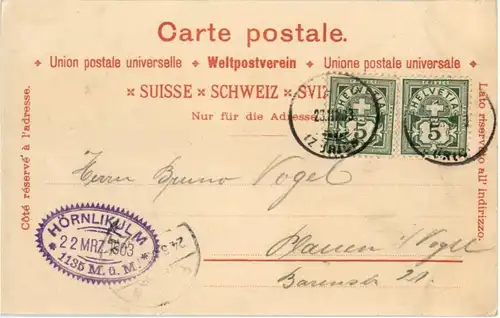 Carte postale.
✦ Union postale universelle ✦ Weltpostverein ✦ Unione postale universale ✦
× SUISSE × SCHWEIZ × SVIZ
Nur für die Adresse
Côté réservé à l'adresse.
Lato riservato all' indirizzo.
HELVETIA
5
HELVETIA
5
Herrn Bruno Vogel
Plauen i/Vogtl
Bärenstr. 21.
HÖRNLIKULM
22 MRZ. 1903
1135 M. ü. M.